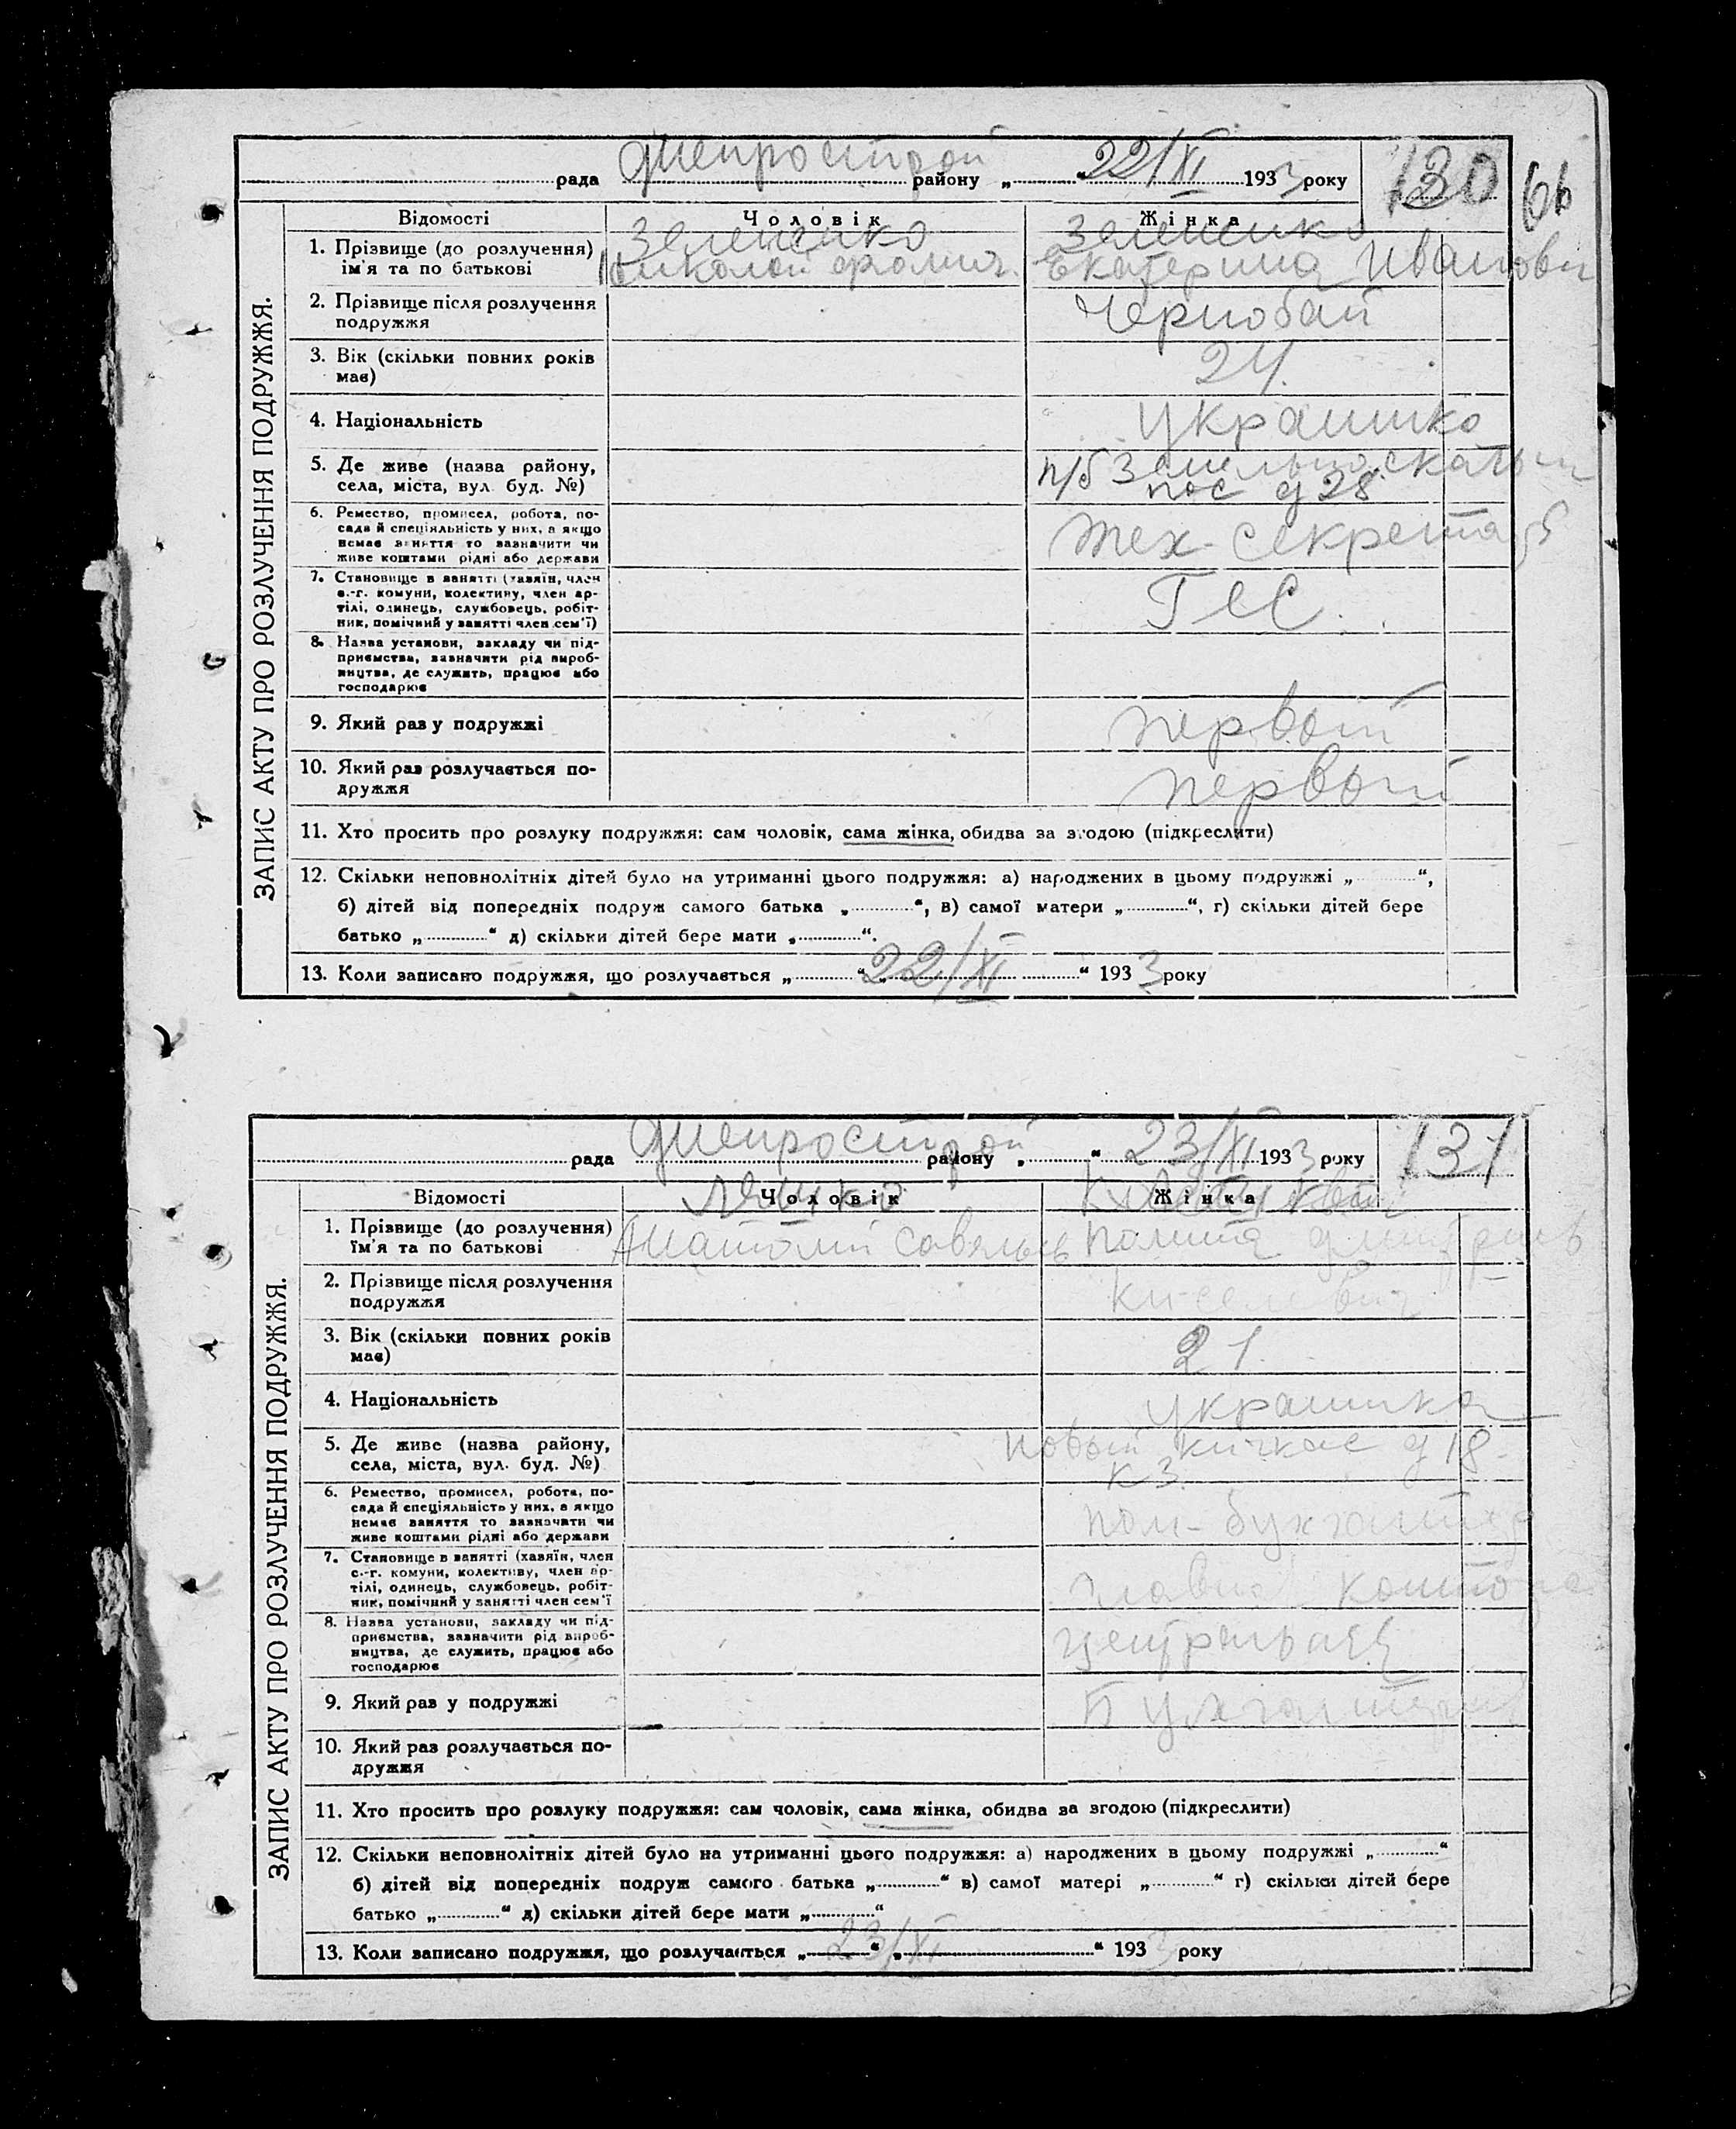 рада Днепрострой району „ “ 22/XI 1933 року 130 66
Відомості Чоловік Жінка
1. Прізвище (до розлучення) ім'я та по батькові
Зеленско Зеленско
Николай Екатерина Иванови
2. Прізвище після розлучення
подружжя
Чернобай
3. Вік (скільки повних років
має)
24.
4. Національність
Украинка
5. Де живе (назва району,
села, міста, вул. буд. №)
п/б
пос д 28
6. Ремество, промисел, робота, по-
сада й спеціяльність у них, а якщо
немає заняття то зазначити чи
живе коштами рідні або держави
тех-секретарь
7. Становище в занятті (хазяїн, член
с.-г. комуни, колективу, член ар-
тілі, одинець, службовець, робіт-
ник, помічний у занятті член сем'ї)
ГЕС.
8. Назва установи, закладу чи під-
приємства, зазначити рід вироб-
ництва, де служить, працює або
господарює
9. Який раз у подружжі
первый
10. Який раз розлучається по-
дружжя
первый
11. Хто просить про розлуку подружжя: сам чоловік, сама жінка, обидва за згодою (підкреслити)
12. Скільки неповнолітніх дітей було на утриманні цього подружжя: а) народжених в цьому подружжі „ “,
б) дітей від попередніх подруж самого батька „ “, в) самої матери „ “, г) скільки дітей бере
батько „ “ д) скільки дітей бере мати „ “.
13. Коли записано подружжя, що розлучається „ “ 22/XI “ 1933 року
ЗАПИС АКТУ ПРО РОЗЛУЧЕННЯ ПОДРУЖЖЯ.
рада Днепрострой району „ “ 23/XI 1933 року 131
Відомості Чоловік Жінка
1. Прізвище (до розлучення)
їм'я та по батькові
Анатолий Савельев
2. Прізвище після розлучення
подружжя
3. Вік (скільки повних років
має)
21.
4. Національність
украинка
5. Де живе (назва району,
села, міста, вул. буд. №)
Новый Кичкас д 18.
к 3.
6. Ремество, промисел, робота, по-
сада й спеціяльність у них, а якщо
немає заняття то зазначити чи
живе коштами рідні або держави
пом-бухгалтер
7. Становище в занятті (хазяїн, член
с.-г. комуни, колективу, член ар-
тілі, одинець, службовець, робіт-
ник, помічний у занятті член сем'ї
8. Назва установи, закладу чи під-
приємства, зазначити рід вироб-
ництва, де служить, працює або
господарює
9. Який раз у подружжі
10. Який раз розлучається по-
дружжя
11. Хто просить про розлуку подружжя: сам чоловік, сама жінка, обидва за згодою (підкреслити)
12. Скільки неповнолітніх дітей було на утриманні цього подружжя: а) народжених в цьому подружжі „ “
б) дітей від попередніх подруж самого батька „ “ в) самої матері „ “ г) скільки дітей бере
батько „ “ д) скільки дітей бере мати „ “
13. Коли записано подружжя, що розлучається „ 23/XI “ 1933 року
ЗАПИС АКТУ ПРО РОЗЛУЧЕННЯ ПОДРУЖЖЯ.